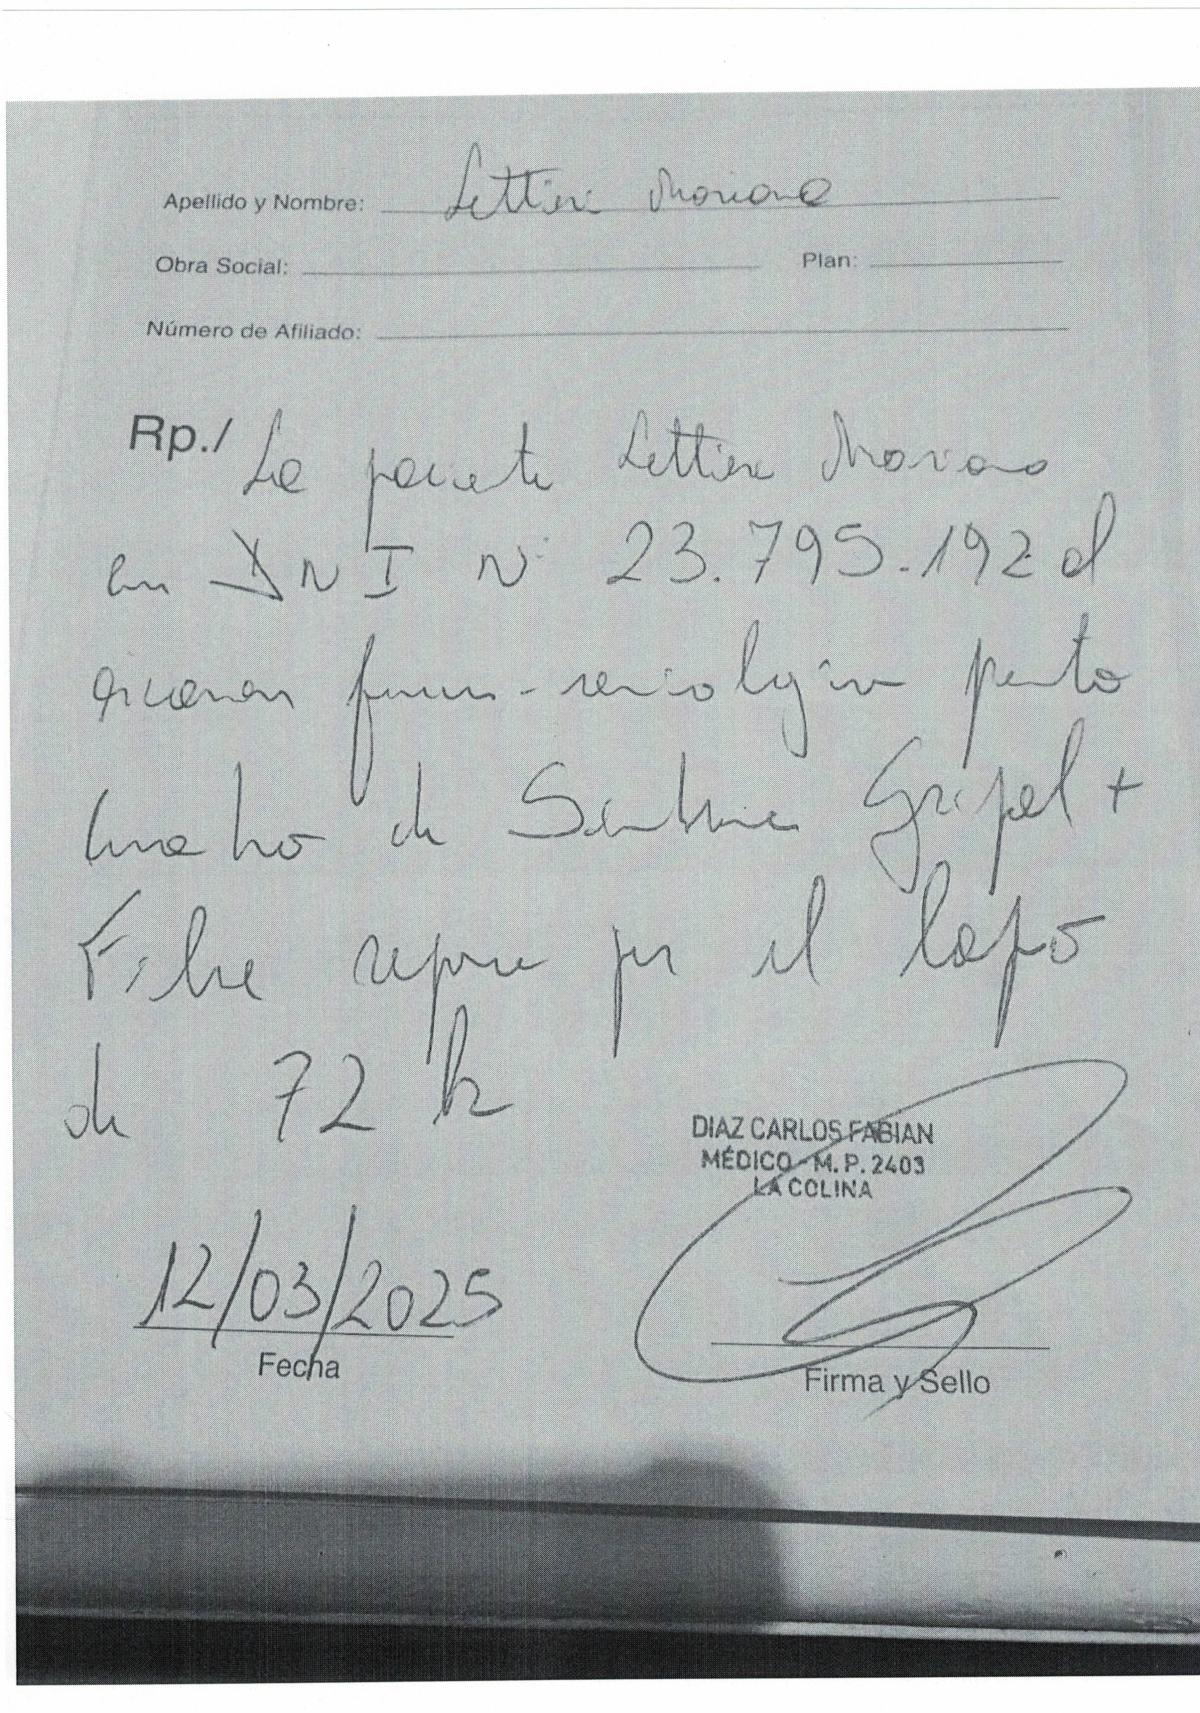 Apellido y Nombre: Lettiere Mariana
Obra Social: Plan:
Número de Afiliado:
Rp./ La paciente Lettiere Mariana
con DNI Nº 23.795.192 al
examen presenta
cuadro de Sindrome Gripal +
Fiebre reposo por el lapso
de 72 h
DIAZ CARLOS FABIAN
MÉDICO - M. P. 2403
LA COLINA
12/03/2025
Fecha
Firma y Sello